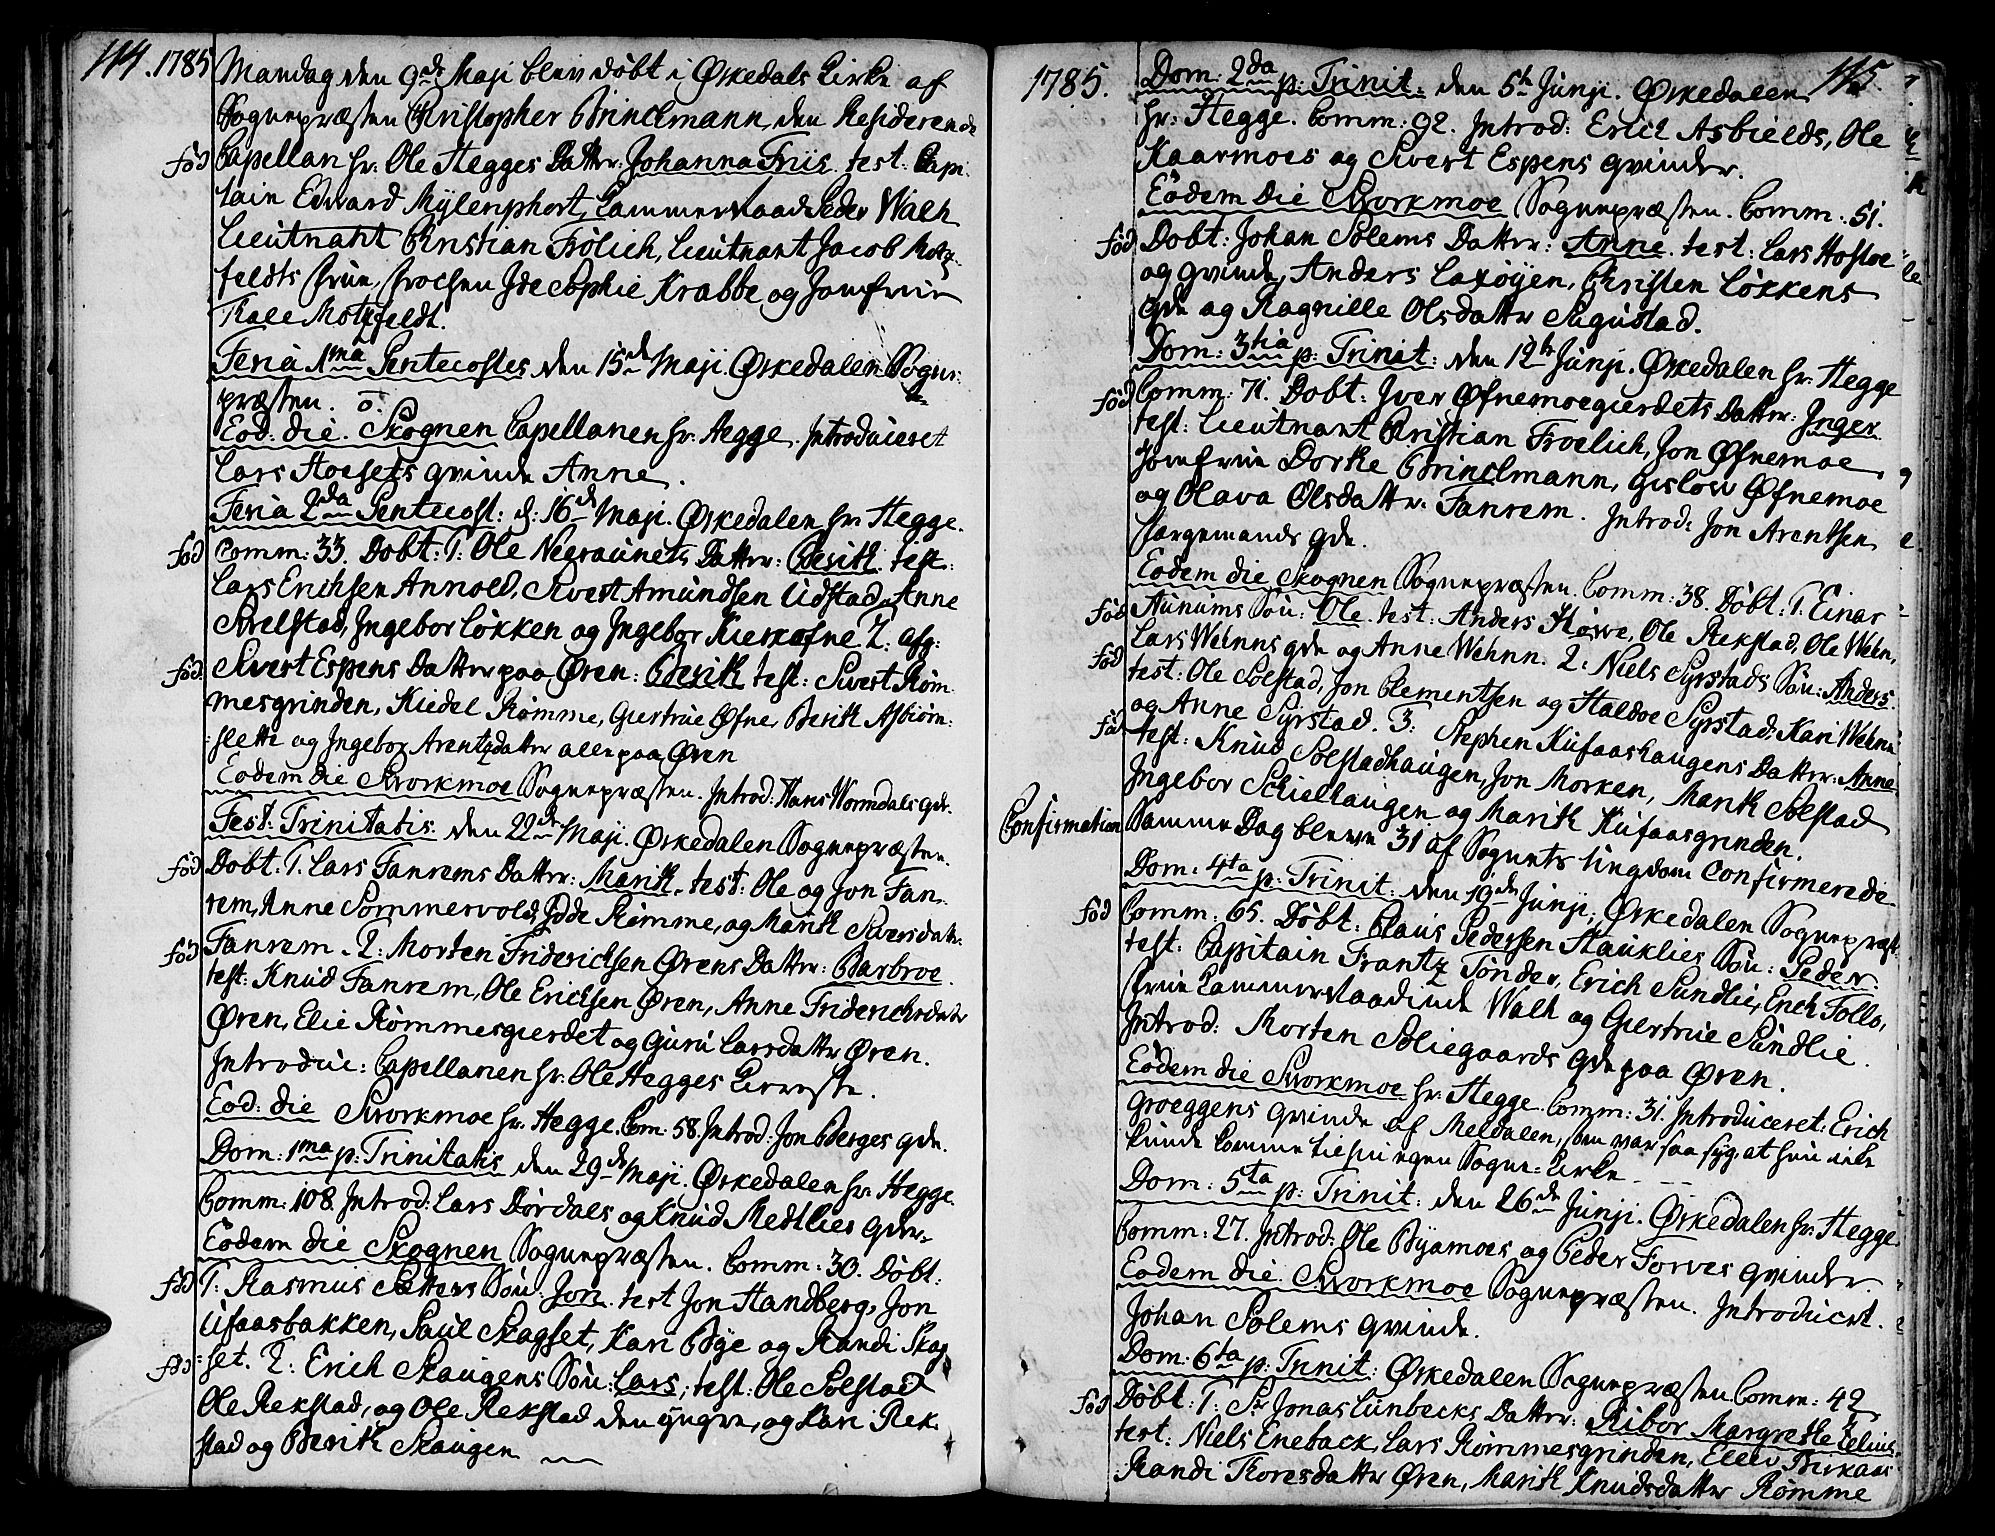 114. 1785
Mandag den 9de Maji blev døbt i Ørkedals Kirke af
Sognepræsten Christopher Brinchmann, den Residerende
fød Capellan Hr: Ole Hegges Datter: Johanna Friis. test: Capi-
tain Edvard Mylenphort, Cammerraad Peder Walh
Lieutnant Christian Frølich, Lieutnant Jacob Motz-
feldts Frue, Frøchen Ide Sophie Krabbe og Jomfrue
Kale Motzfeldt.
Feria 1ma Pentecostes den 15de Maji. Ørkedalen Sogne-
præsten. o.
Eod: die. Skognen Capellanen Hr: Hegge. Introduceret
Lars Hoesets qvinde Anne.
Feria 2da Pentecost: d: 16de Maji. Ørkedalen Hr: Hegge.
fød Comm: 33. Døbt: 1. Ole Negraunets Datter: Berith. test:
Lars Erichsen Annold, Sivert Amundsen Udstad, Anne
Ingebor Løkken og Ingebor Kierkofne 2: afg:
fød Sivert Espens Datter paa Øren: Berith test: Sivert Røm-
mesgrinden, Kiedel Rømme, Giertrue Øfne, Berith Asbiørn-
slette og Ingebor Arentzdatter alle paa Øren
Eodem die Svorkmoe Sognepræsten. Introd: Hans Wormdals qde.
Fest: Trinitatis den 22de Maji. Ørkedalen Sognepræsten.
fød Døbt: 1. Lars Fanrems Datter: Marith. test: Ole og Jon Fan-
rem, Anne Sommervold, Idde Rømme, og Marith Siversdatter
fød Fanrem. 2: Morten Friderichsen Ørens Datter: Barbroe.
test: Knud Fanrem, Ole Erichsen Øren, Anne Friderichsdatter
Øren, Elie Rømmesgierdet og Guru Larsdatter Øren.
Introduc: Capellanen Hr: Ole Hegges Kierreste.
Eod: die Svorkmoe Hr. Hegge. Com: 58. Introd: Jon Berges qde.
Dom: 1ma p: Trinitatis den 29de Maji. Ørkedalen Hr: Hegge.
Comm: 108. Introd: Lars Dørdals og Knud Medtlies qder.
Eodem die Skognen Sognepræsten. Comm: 30. Døbt:
fød 1. Rasmus Sætters Søn: Jon. test Jon Standberg, Jon
Ufaasbakken, Paul Skagset, Kari Bye og Randi Skag-
fød set. 2: Erich Skaugens Søn: Lars, test: Ole Solstad
Ole Rekstad, og Ole Rekstad den yngre, og Kari Rek-
stad og Berith Skaugen
1785. 115.
Dom: 2da p: Trinit: den 5te Junji. Ørkedalen
Hr: Hegge. Comm: 92. Introd: Erich Asbields, Ole
Kaarmoes og Sivert Espens qvinder.
Eodem die Svorkmoe Sognepræsten. Comm: 51.
fød Døbt: Johan Solems Datter: Anne. test: Lars Hofloe
og qvinde, Anders Laxøyen, Christen Løkkens
qde og Ragnille Olsdatter Sugustad.
Dom: 3tia p: Trinit: den 12te Junji. Ørkedalen Hr: Hegge
fød Comm: 71. Døbt: Iver Øfnemoegierdets Datter: Inger
test: Lieutnant Christian Froelich, Jon Øfnemoe
Jomfrue Dorthe Brinchmann, Gislow Øfnemoe
og Olava Olsdatter Fanrem. Introd: Jon Arentsen
Fargemands qde.
Eodem die Skognen Sognepræsten. Comm: 38. Døbt: 1. Einar
fød Aunums Søn: Ole. test: Anders Hørve, Ole Rekstad, Ole Wehn,
Lars Wehnns qde og Anne Wehnn. 2: Niels Syrstads Søn: Anders.
fød test: Ole Solstad, Jon Clementsen og Haldoe Syrstad: Kari Wehnn
og Anne Syrstad. 3: Stephen Kufaashaugens Datter: Anne
fød test: Knud Solstadhaugen, Jon Morken, Marith Solstad
Ingebor Schielhaugen og Marith Kufaasgrinden.
Confirmation Samme Dag bleve 31 af Sognets Ungdom Confirmerede
Dom: 4ta p: Trinit: den 19de Junji. Ørkedalen Sognepræst.
fød Comm: 65. Døbt: Claus Pedersen Hauklies Søn: Peder.
test: Capitain Frantz Tønder, Erich Sundlie, Erich Follo,
Frue Cammerraadinde Walh og Giertrue Sundlie.
Introd: Morten Soliegaards qde paa Øren.
Eodem die Svorkmoe Hr: Hegge. Comm: 31. Introduceret: Erich
Groeggens qvinde af Meldalen, som var saa syg, at hun icke
kunde komme til sin egen Sogne-Kirke - - -
Dom: 5ta p: Trinit: den 26de Junji. Ørkedalen Hr: Hegge.
Comm: 27. Introd: Ole Byamoes og Peder Forves qvinder.
Eodem die. Svorkmoe Sognepræsten. Introduceret.
Johan Solems qvinde.
Dom: 6ta p: Trinit: Ørkedalen Sognepræsten. Comm: 42
fød Døbt: 1: Sr Jonas Lunbecks Datter: Kibor Margrethe Celius
test: Niels Eneback, Lars Rømmesgrinden, Ellev Birkaas
Randi Toresdatter Øren, Marith Knudsdatter Rømme